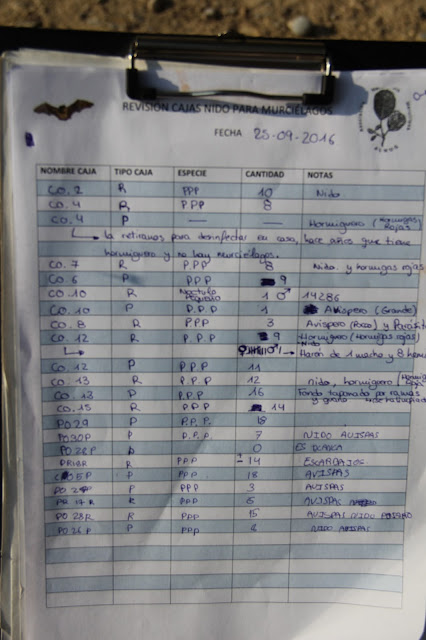 REVISIÓN CAJAS NIDO PARA MURCIÉLAGOS
FECHA 25-09-2016
NOMBRE CAJA TIPO CAJA ESPECIE CANTIDAD NOTAS
CO. 2 R PPP 10 Nido
CO. 4 R PPP 8
CO. 4 P — — Hormiguero (hormigas rojas
la retiramos para desinfectar en casa, hace años que tiene
hormiguero y no hay murciélagos.
CO. 7 R P.P.P 8 Nido y hormigas rojas
CO. 6 P PPP 9
CO. 10 R Nóctulo pequeño 1 ♂ 14286
CO. 10 P P.P.P 1 Avispero (Grande)
CO. 8 R PPP 3 Avispero (Poco) y
CO. 12 R P.P.P 9 Hormiguero (Hormigas rojas)
Nido
Harén de 1 macho y 8
CO 12 P P.P.P 11
CO. 13 R P.P.P 12 nido, hormiguero
CO. 13 P P.P.P 16 Fondo taponado por ramas
CO. 15 R PPP 14
PO 29 P P.P.P.
P P.P.P. 7 NIDO AVISPAS
PO 26 P 0
R PPP 14 ESCARABAJOS
P PPP. 18 AVISPAS
P PPP 3 AVISPAS
PR 17 R R PPP 6 AVISPAS
PO 28 R R PPP 15 AVISPAS NIDO
PO 26 P P PPP NIDO AVISPAS